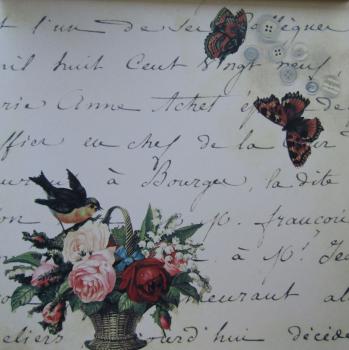 t l'un de ses léguer
ril huit Cent vingt neuf
rie Anne Achet é de
ffier en chef de la Cour
à Bourges, la dite
M. francois
à M. Je
eurant al
eliers jourd'hui décéde